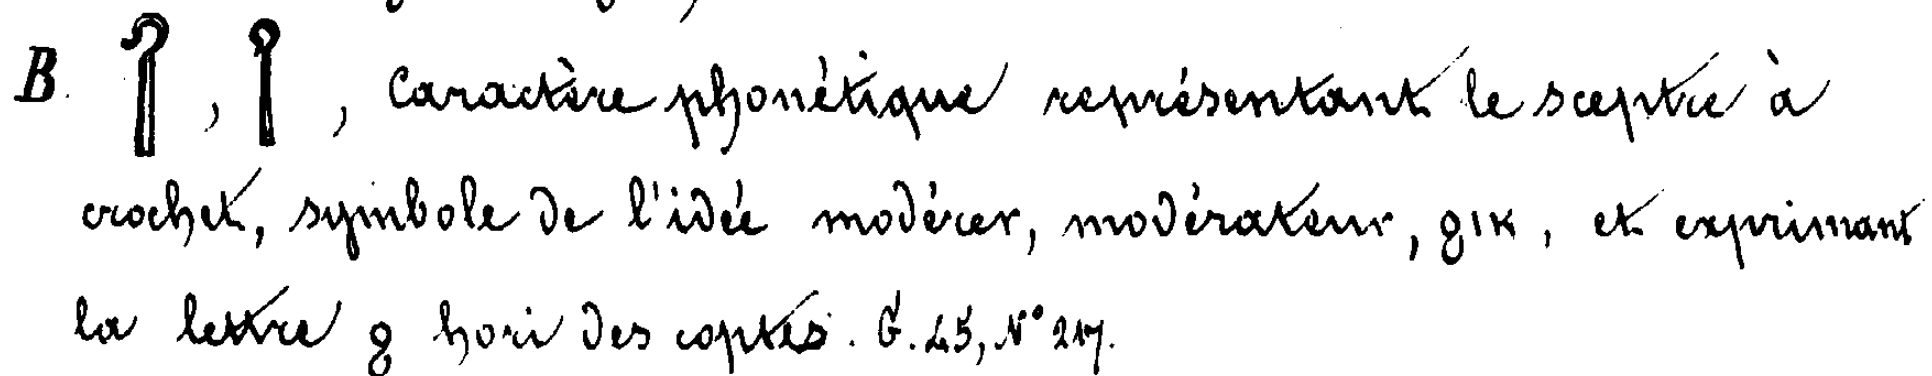 B. 𓋾, 𓋾, Caractère phonétique représentant le sceptre à
crochet, symbole de l'idée modérer, modérateur, ϩⲓⲕ, et exprimant
la lettre ϩ hori des coptes. G. 45, N° 217.